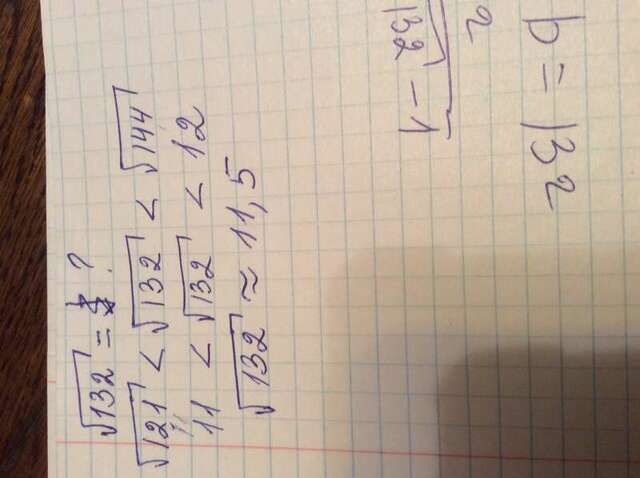 √132 = ?
√121 < √132 < √144
11 < √132 < 12
√132 ≈ 11,5
b = 132
2